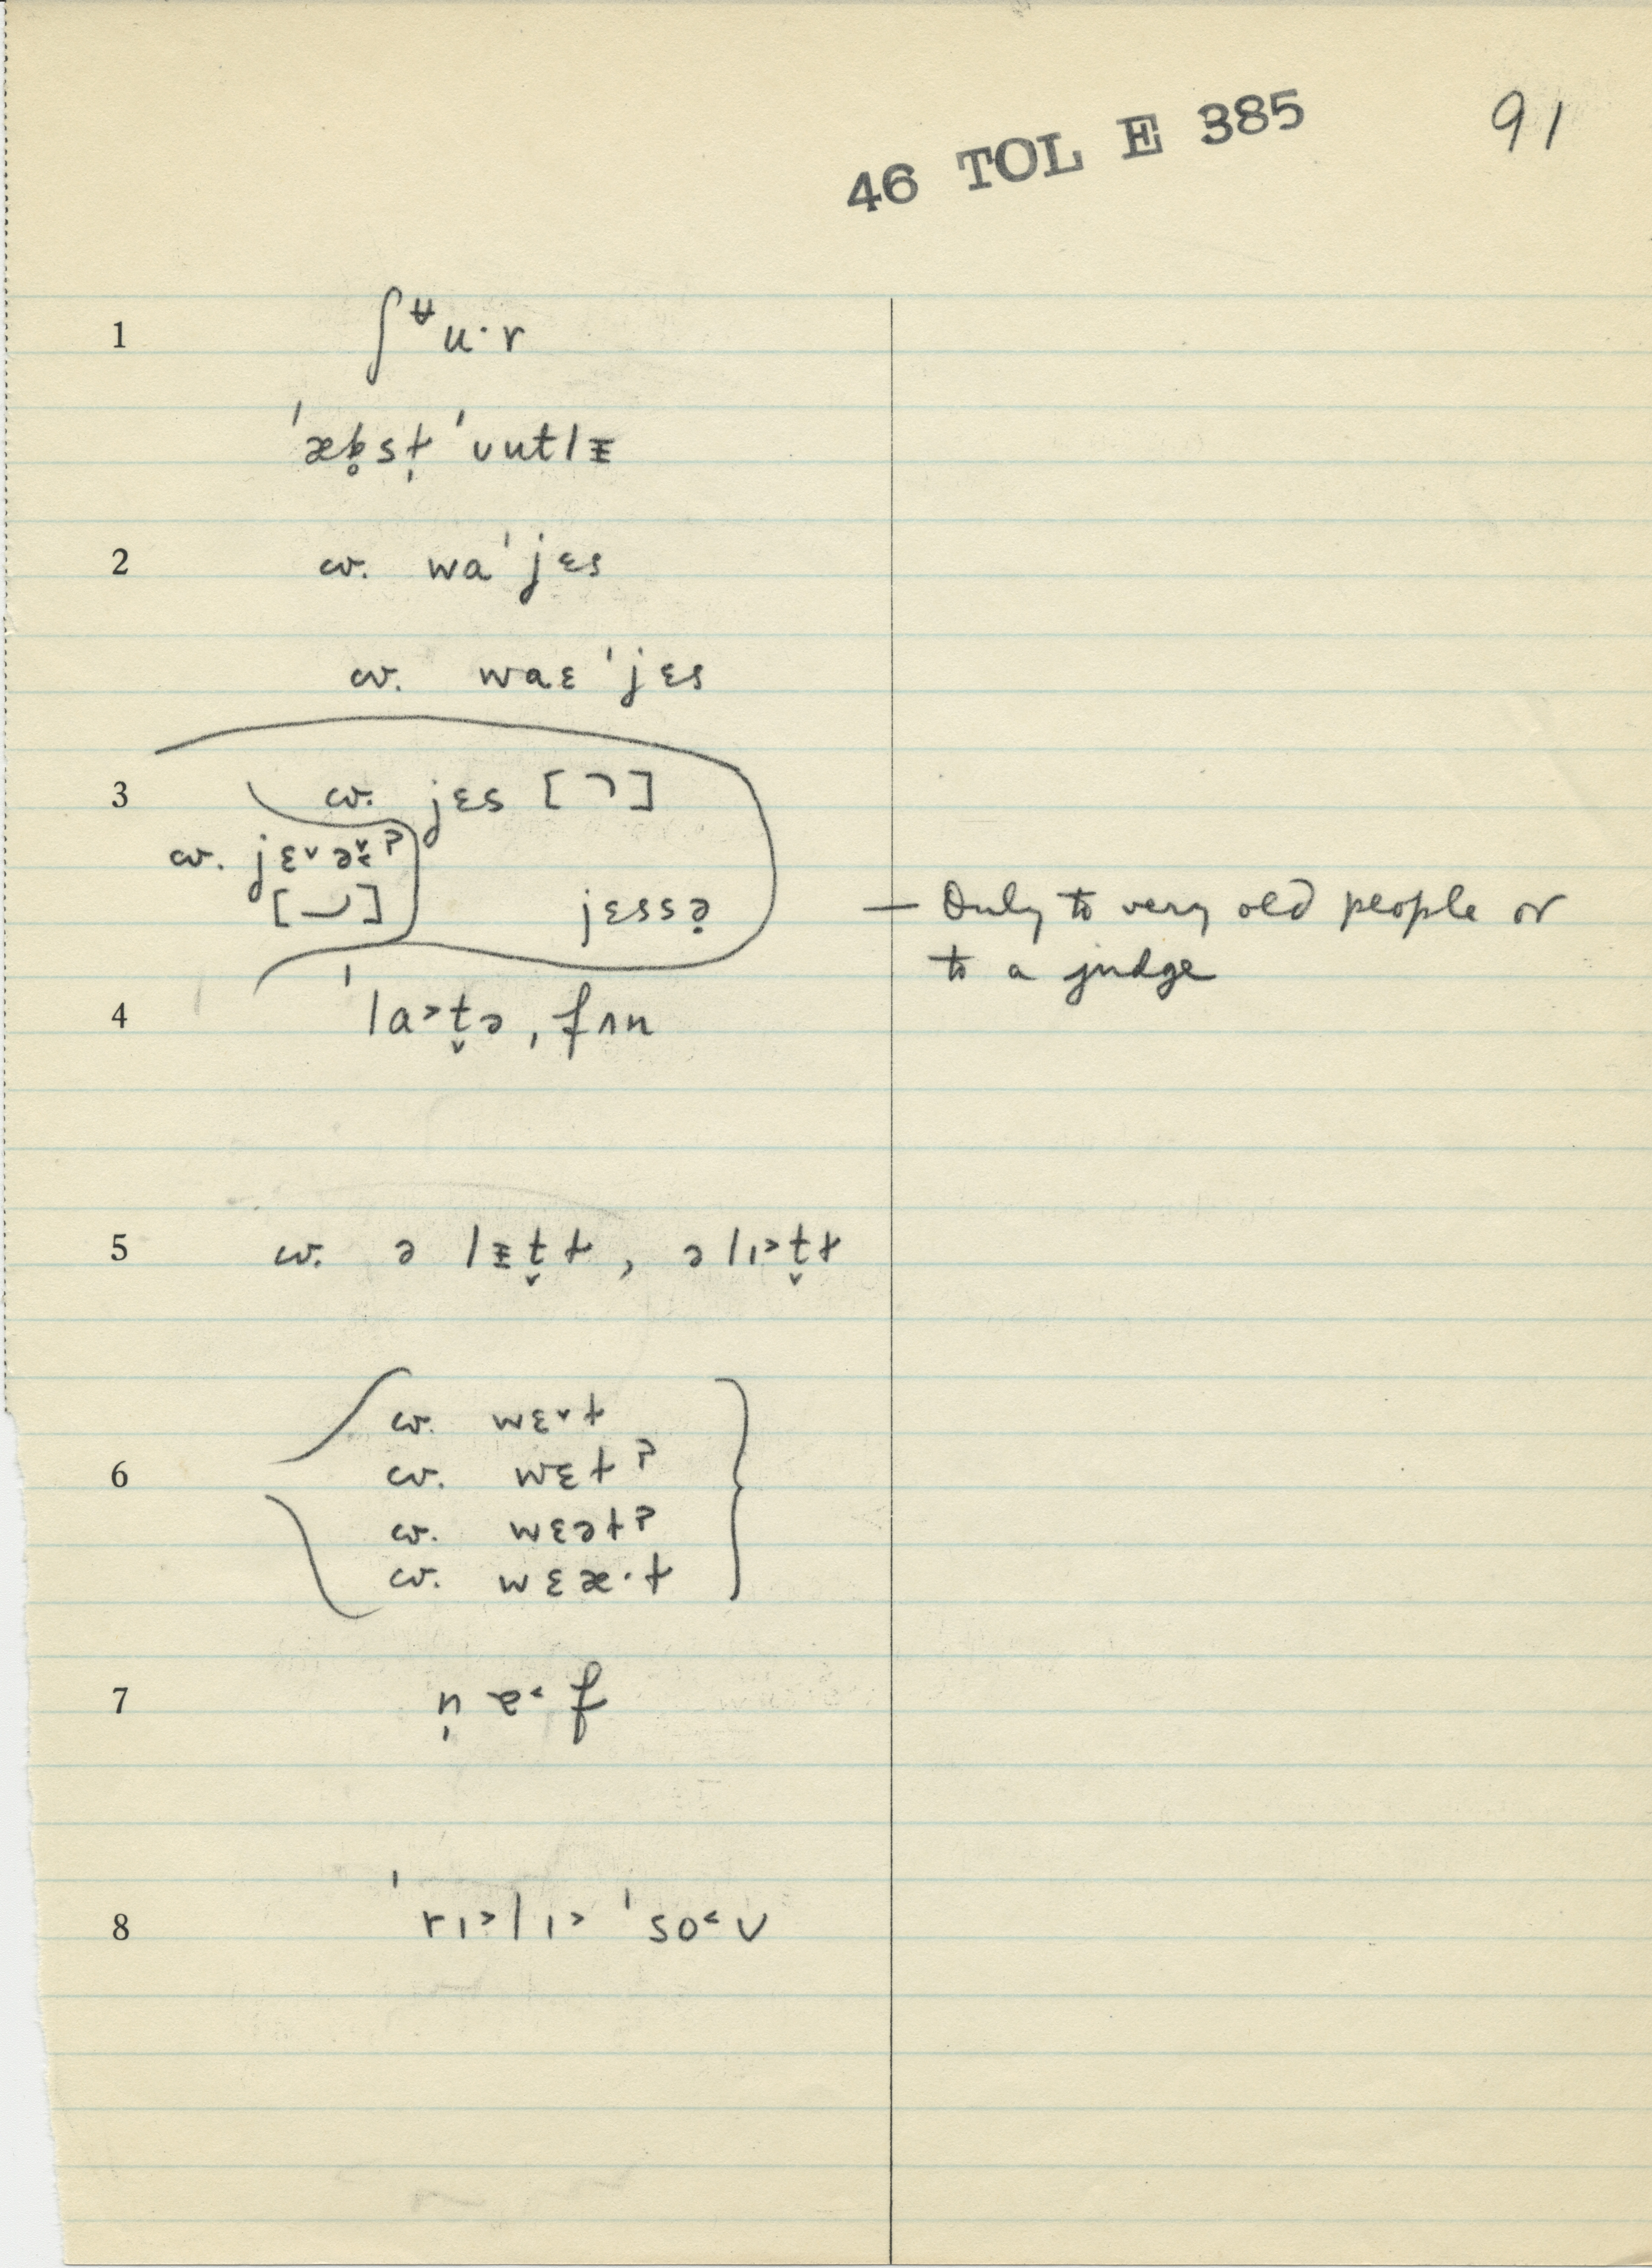 46 TOL E 385
91
1 ʃᵾu·r
ˈæb̥st̩ ˈvutlᵻ
2 cv. waˈjɛs
cv. waɛˈjɛs
3 cv. jɛs [⌝]
cv. jɛ˅ə˅˂ʔ
[⌣] jɛssə̣
— Only to very old people or
to a judge
4 ˈla˃t̬ə, fʌn
5 cv. ə lᵻt̬ɫ, ə lɪ˃t̬ɫ
6 cv. wɛ˅t
cv. wɛtʔ
cv. wɛətʔ
cv. wɛæ·t
7 n̩ ɐ˂f
8 ˈrɪ˃lɪ˃ ˈso˂ʊ